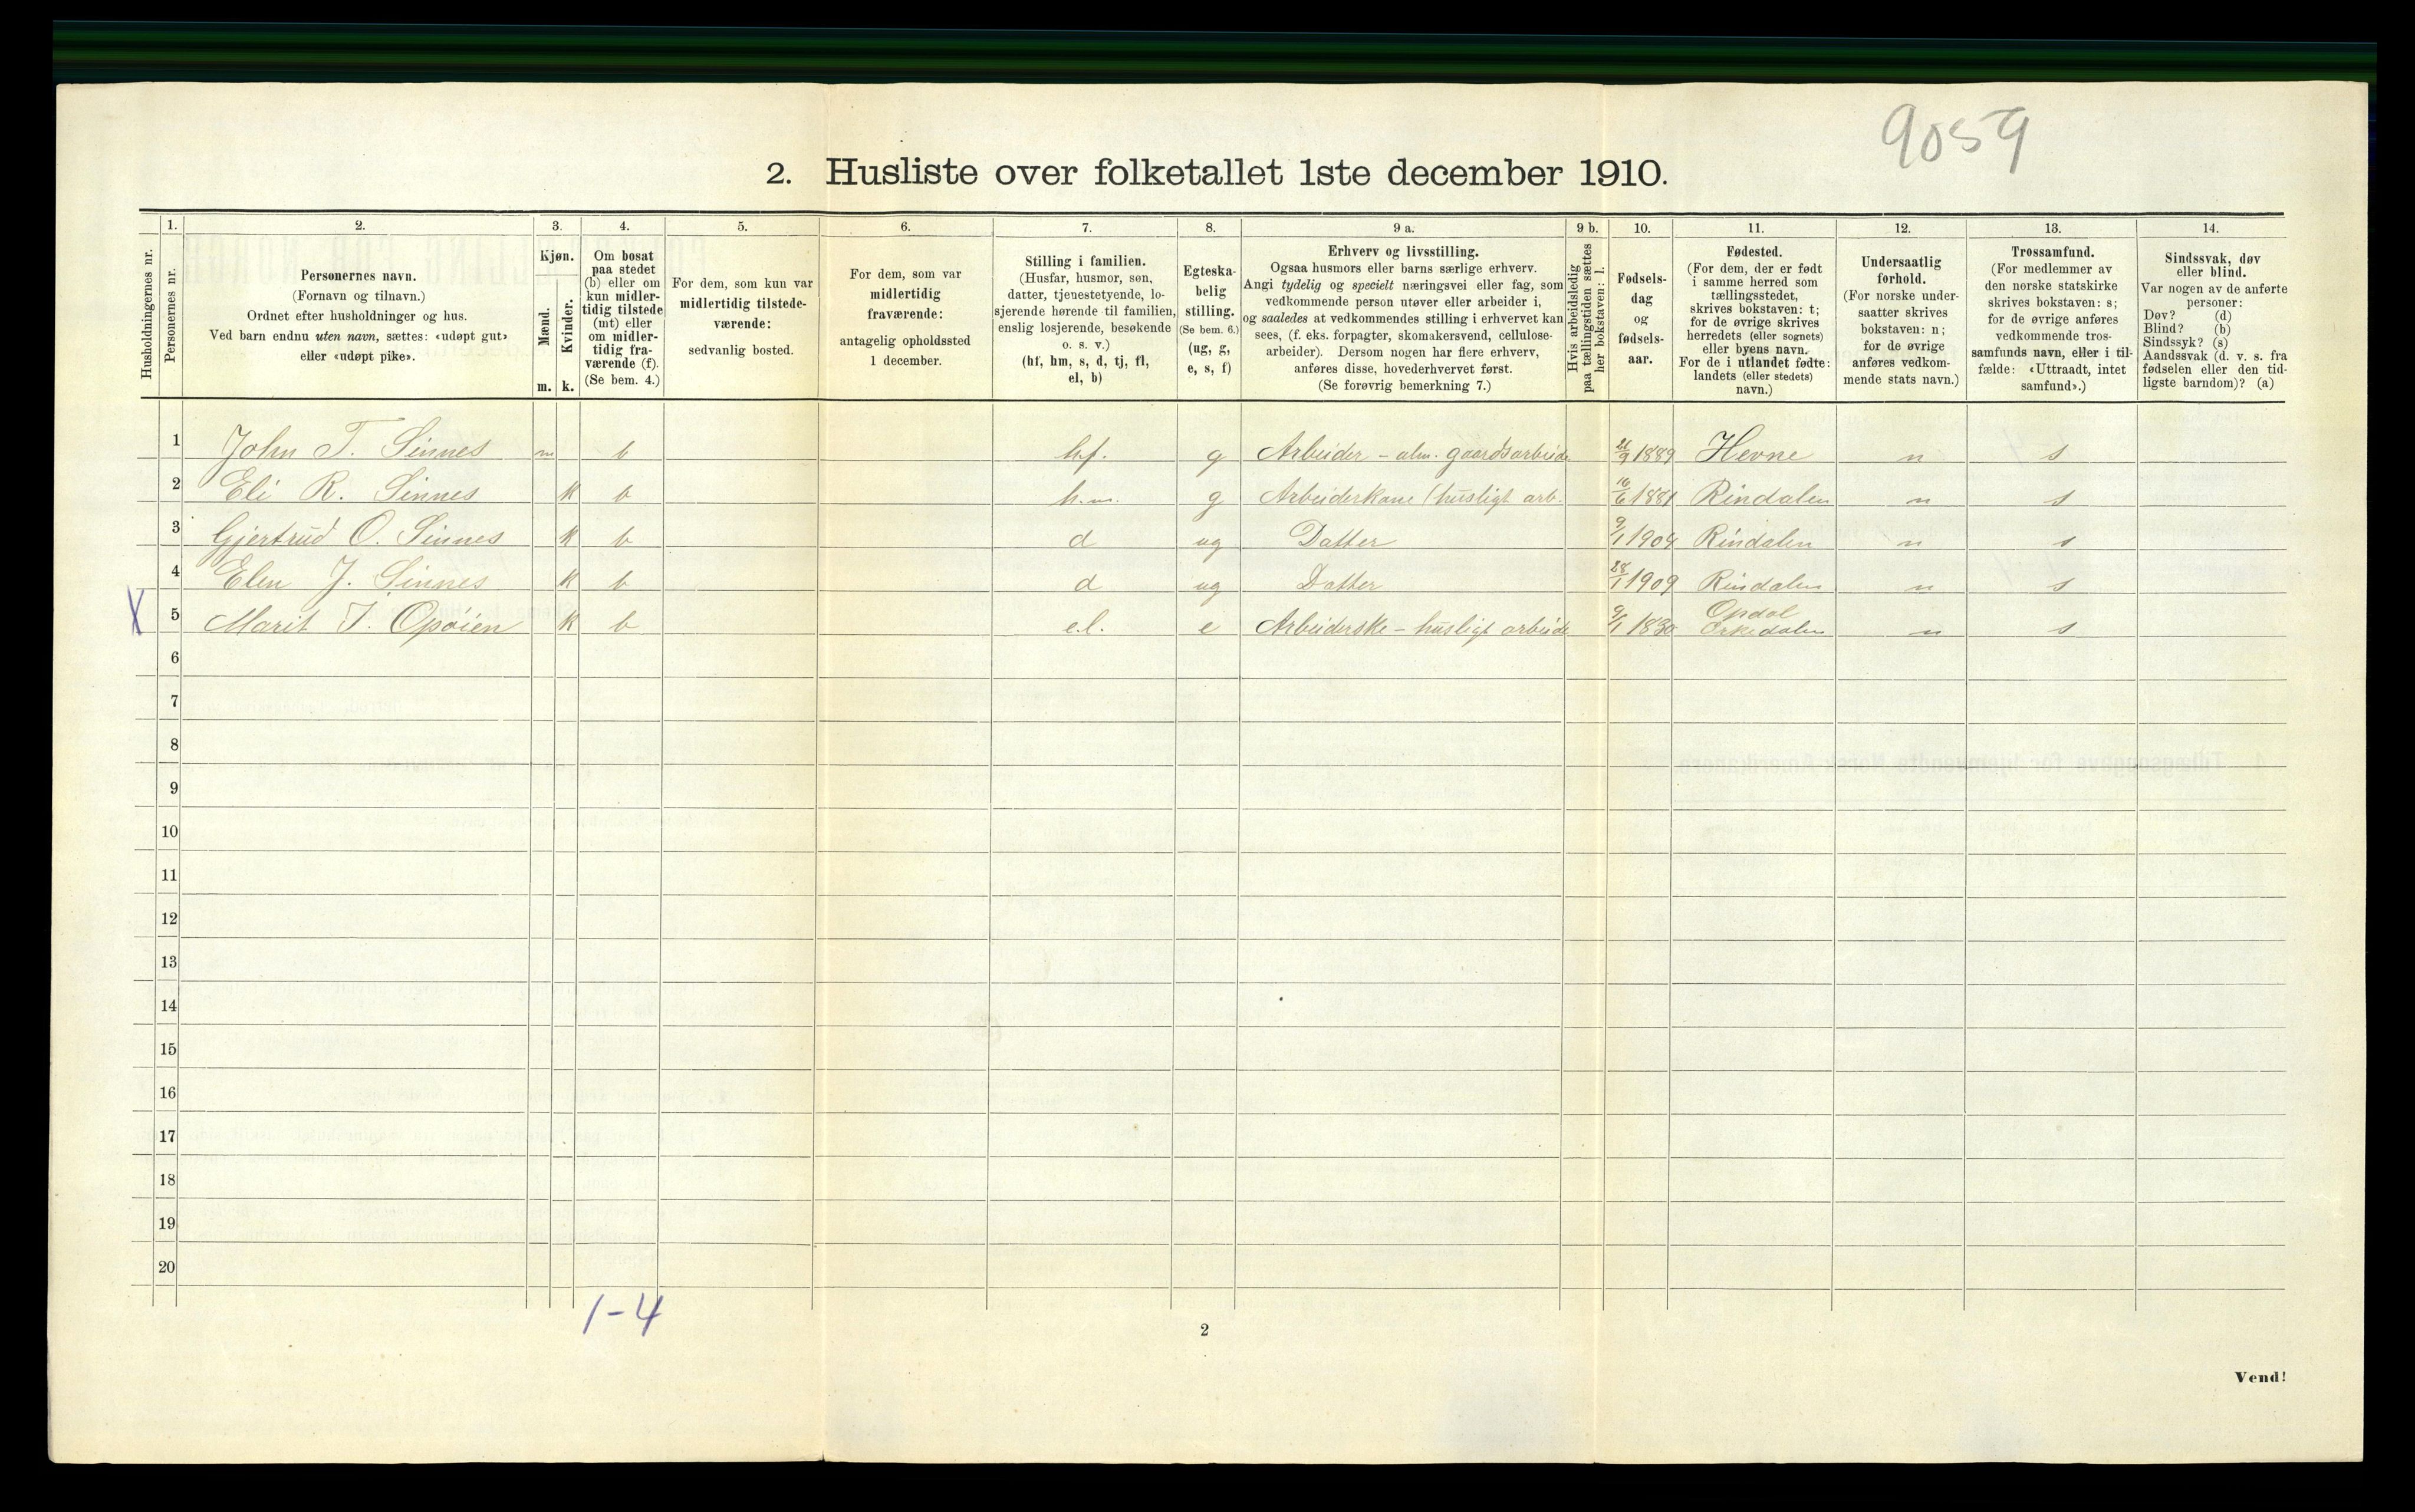 9059
2. Husliste over folketallet 1ste december 1910.
Husholdningernes nr.
1.
Personernes nr.
2.
Personernes navn.
(Fornavn og tilnavn.)
Ordnet efter husholdninger og hus.
Ved barn endnu uten navn, sættes: «udøpt gut»
eller «udøpt pike».
3.
Kjøn.
Mænd.
Kvinder.
m. k.
4.
Om bosat
paa stedet
(b) eller om
kun midler-
tidig tilstede
(mt) eller
om midler-
tidig fra-
værende (f).
(Se bem. 4.)
5.
For dem, som kun var
midlertidig tilstede-
værende:
sedvanlig bosted.
6.
For dem, som var
midlertidig
fraværende:
antagelig opholdssted
1 december.
7.
Stilling i familien.
(Husfar, husmor, søn,
datter, tjenestetyende, lo-
sjerende hørende til familien,
enslig losjerende, besøkende
o. s. v.)
(hf, hm, s, d, tj, fl,
el, b)
8.
Egteska-
belig
stilling.
(Se bem. 6.)
(ug, g,
e, s, f)
9 a.
Erhverv og livsstilling.
Ogsaa husmors eller barns særlige erhverv.
Angi tydelig og specielt næringsvei eller fag, som
vedkommende person utøver eller arbeider i,
og saaledes at vedkommendes stilling i erhvervet kan
sees, (f. eks. forpagter, skomakersvend, cellulose-
arbeider). Dersom nogen har flere erhverv,
anføres disse, hovederhvervet først.
(Se forøvrig bemerkning 7.)
9 b.
Hvis arbeidsledig
paa tællingstiden sættes
her bokstaven: l.
10.
Fødsels-
dag
og
fødsels-
aar.
11.
Fødested.
(For dem, der er født
i samme herred som
tællingsstedet,
skrives bokstaven: t;
for de øvrige skrives
herredets (eller sognets)
eller byens navn.
For de i utlandet fødte:
landets (eller stedets)
navn.)
12.
Undersaatlig
forhold.
(For norske under-
saatter skrives
bokstaven: n;
for de øvrige
anføres vedkom-
mende stats navn.)
13.
Trossamfund.
(For medlemmer av
den norske statskirke
skrives bokstaven: s;
for de øvrige anføres
vedkommende tros-
samfunds navn, eller i til-
fælde: «Uttraadt, intet
samfund».)
14.
Sindssvak, døv
eller blind.
Var nogen av de anførte
personer:
Døv? (d)
Blind? (b)
Sindssyk? (s)
Aandssvak (d. v. s. fra
fødselen eller den tid-
ligste barndom)? (a)
1 John T. Sinnes m b hf. g Arbeider - alm. gaardsarbeide 1889 Hevne n s
2 Eli R. Sinnes k b h.m. g Arbeiderkone (husligt arb. 16/6 1881 Rindalen n s
3 Gjertrud O. Sinnes k b d ug Datter 9/1 1904 Rindalen n s
4 Elen J. Sinnes k b d ug Datter 28/1 1909 Rindalen n s
X 5 Marit I. Opøien k b e.l. e Arbeiderske - husligt arbeide 9/1 1830 Opdal Orkedalen n s
6
7
8
9
10
11
12
13
14
15
16
17
18
19
20
1-4
2
Vend!